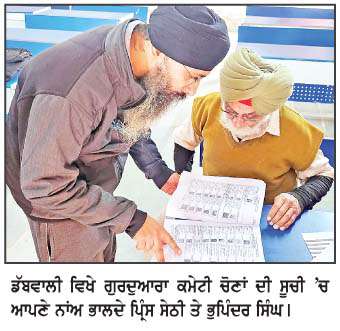 ਡੱਬਵਾਲੀ ਵਿਖੇ ਗੁਰਦੁਆਰਾ ਕਮੇਟੀ ਚੋਣਾਂ ਦੀ ਸੂਚੀ ’ਚ
ਆਪਣੇ ਨਾਂਅ ਭਾਲਦੇ ਪ੍ਰਿੰਸ ਸੇਠੀ ਤੇ ਭੁਪਿੰਦਰ ਸਿੰਘ।